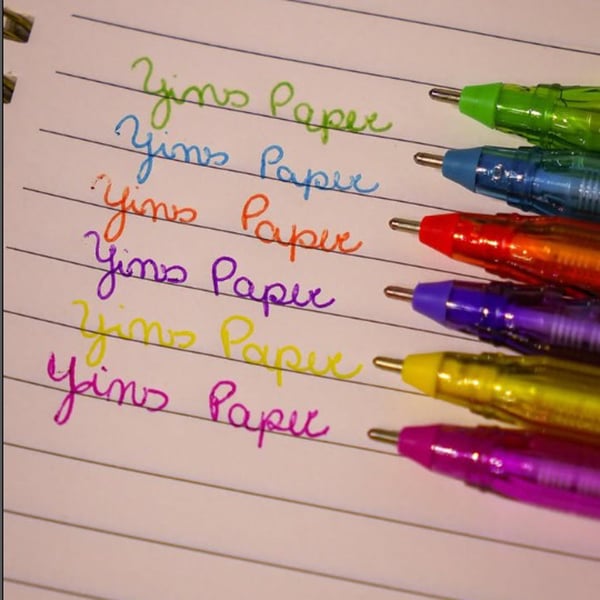 Yins Paper
Yins Paper
Yins Paper
Yins Paper
Yins Paper
Yins Paper